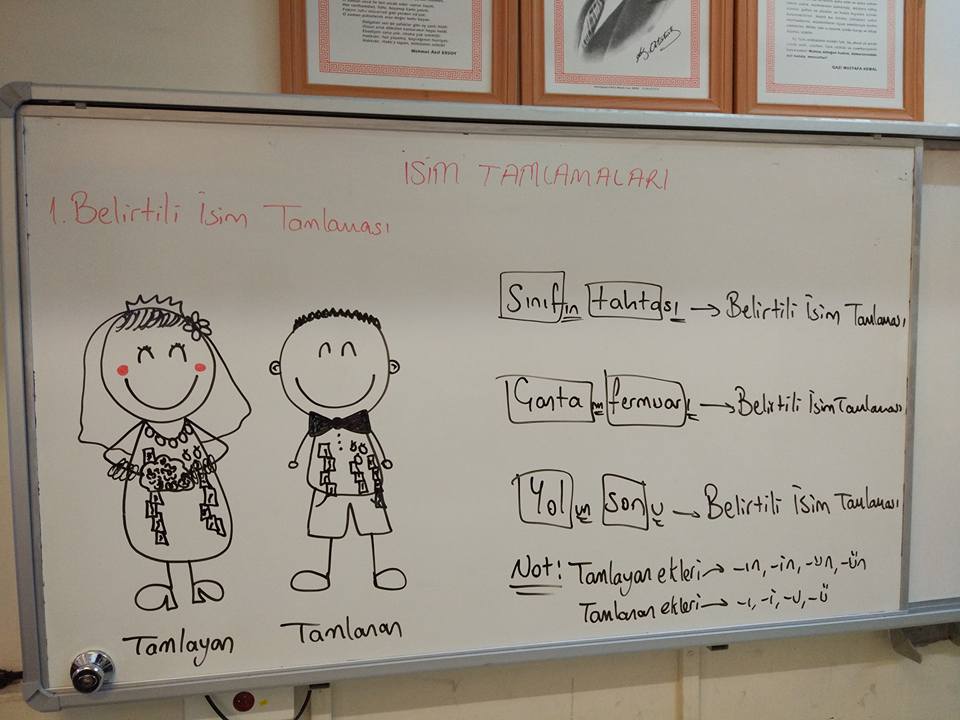 Mehmet Akif ERSOY
GAZİ MUSTAFA KEMAL
İSİM TAMLAMALARI
1. Belirtili İsim Tamlaması
Sınıfın tahtası → Belirtili İsim Tamlaması
Çantanın fermuarı → Belirtili İsim Tamlaması
Yolun sonu → Belirtili İsim Tamlaması
Not: Tamlayan ekleri → -ın, -in, -un, -ün
Tamlanan ekleri → -ı, -i, -u, -ü
Tamlayan
Tamlanan